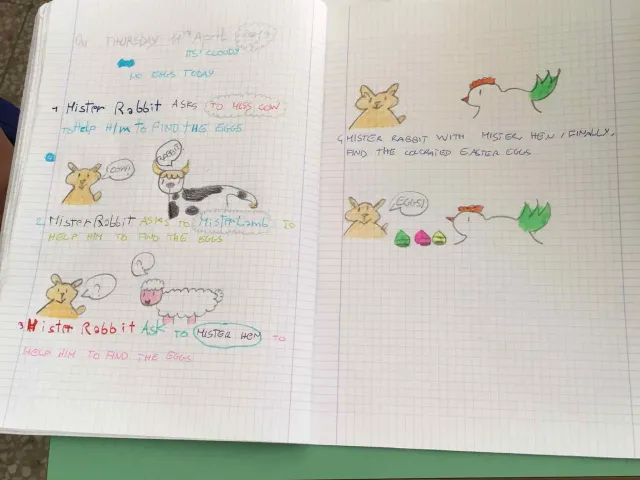 THURSDAY 14th April
ITS' CLOUDY
NO EGGS TODAY
1 Mister Rabbit ASKS TO MISS COW
TO HELP HIM TO FIND THE EGGS
COW!
RABBIT
2 Mister Rabbit ASKS TO MISTER LAMB TO
HELP HIM TO FIND THE EGGS
?
?
3 Mister Rabbit ASK TO MISTER HEN TO
HELP HIM TO FIND THE EGGS
4 MISTER RABBIT WITH MISTER HEN, FINALLY,
FIND THE COLORATED EASTER EGGS
EGGS!